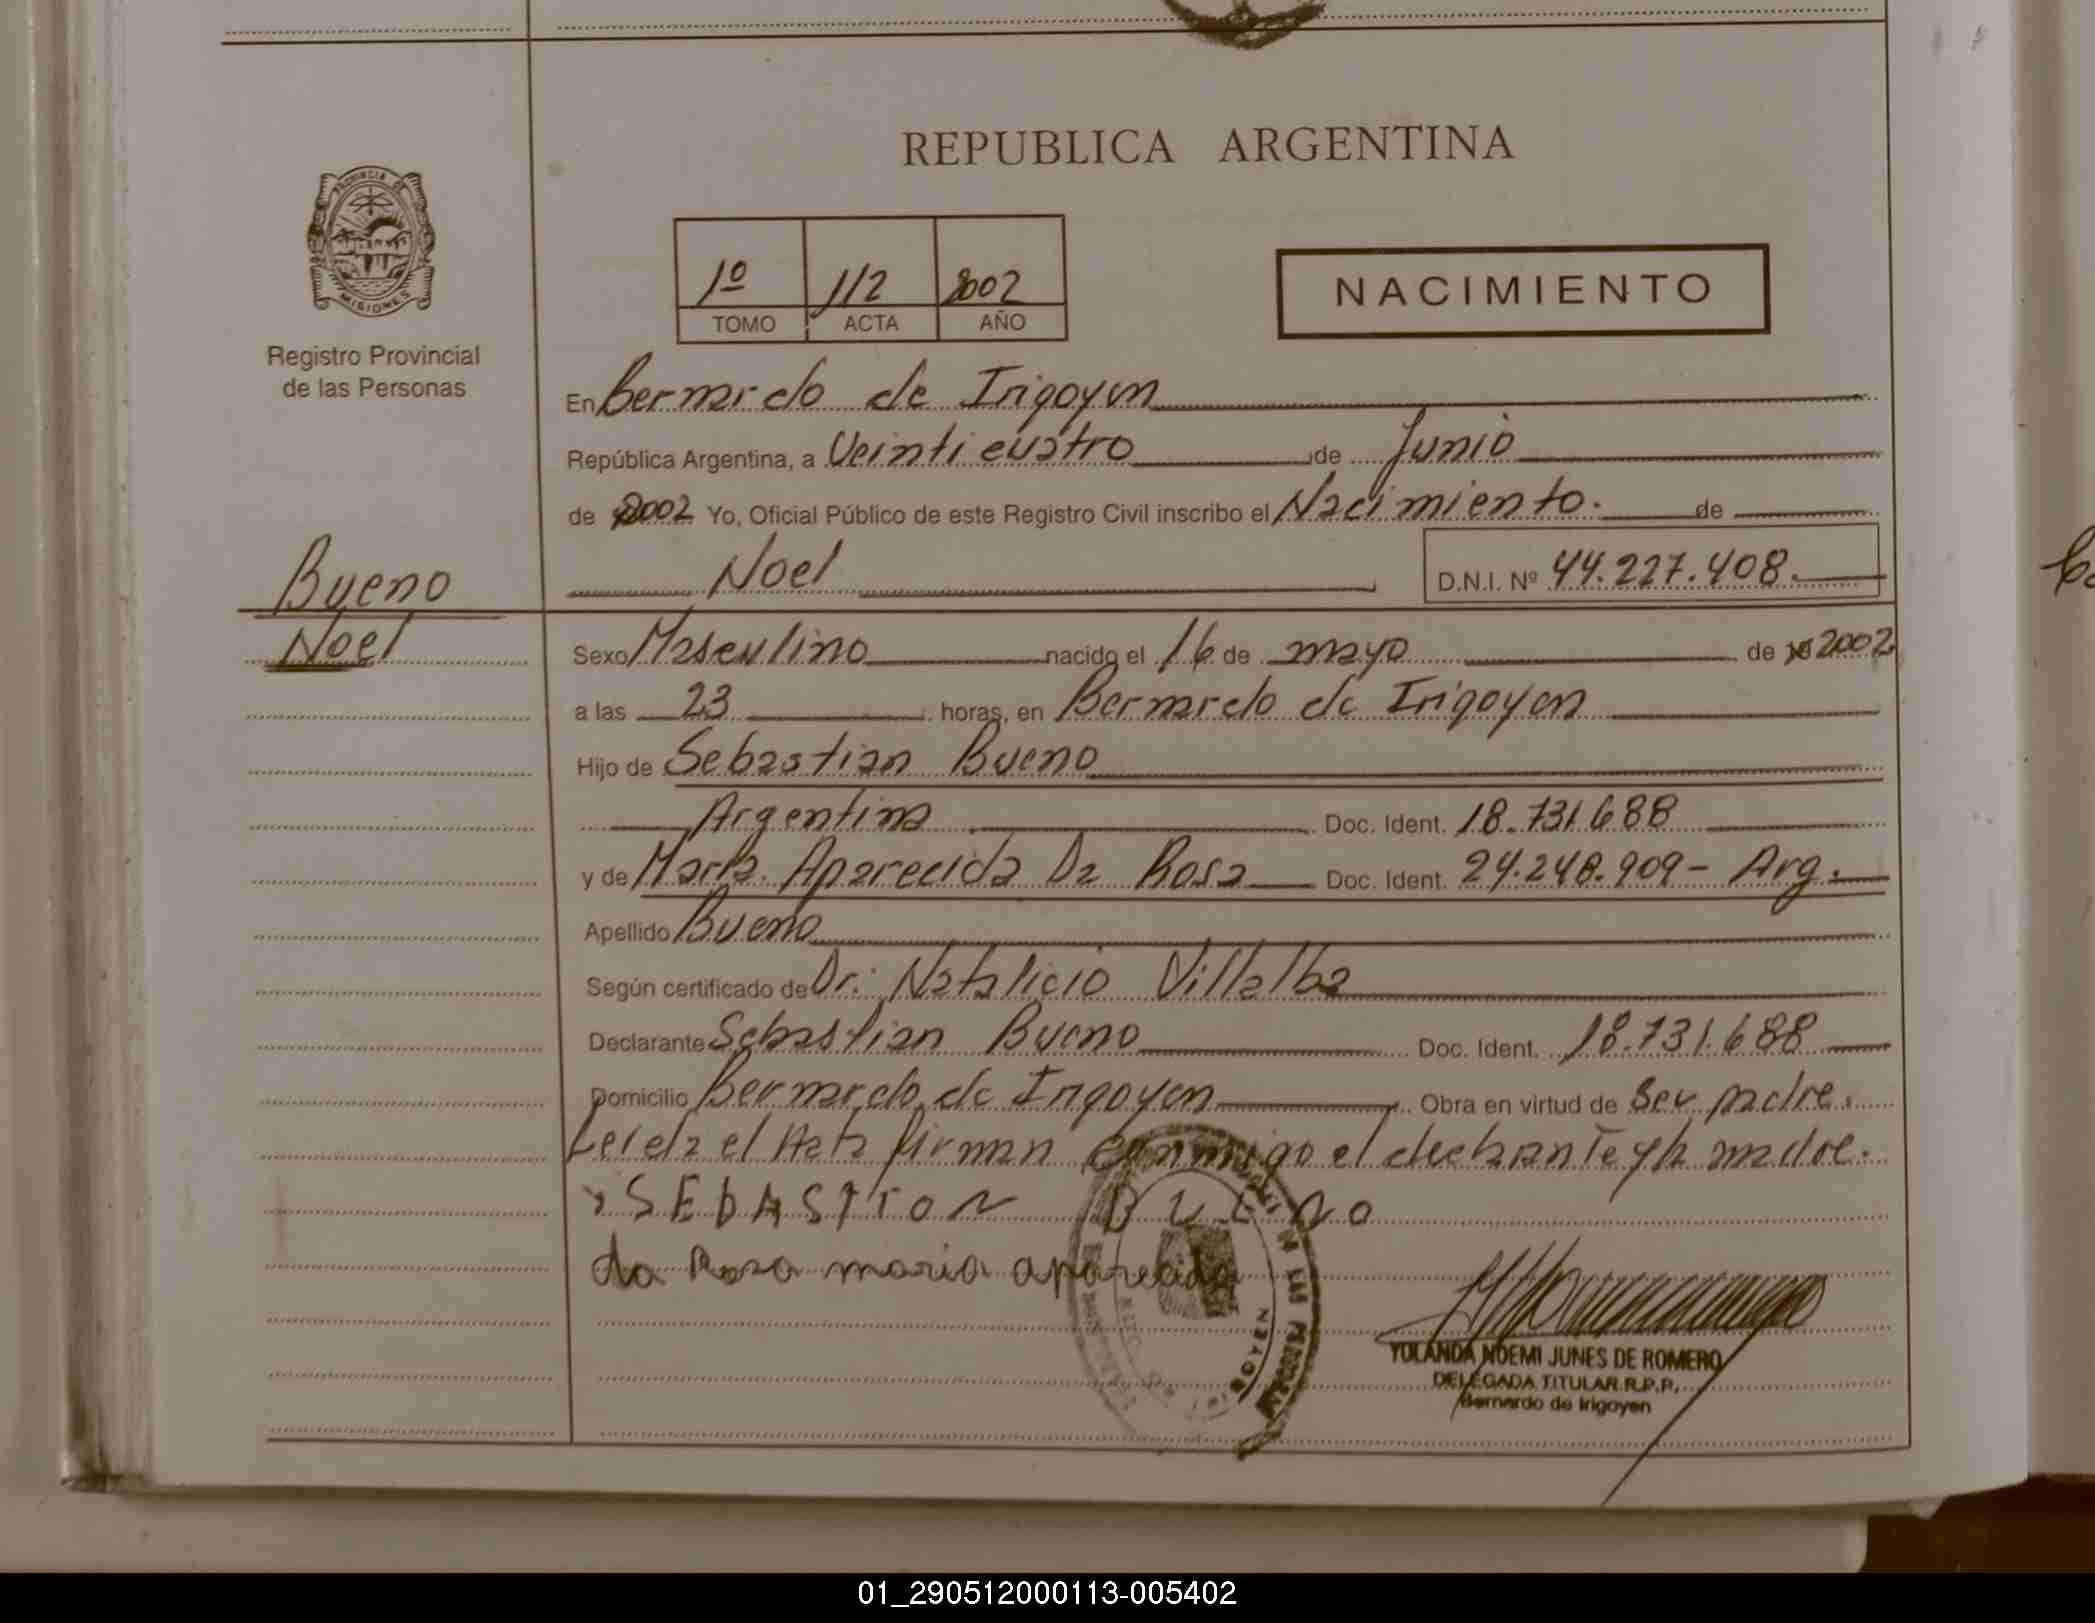 REPUBLICA ARGENTINA
PROVINCIA DE
MISIONES
Registro Provincial
de las Personas
1º 112 2002
TOMO ACTA AÑO
NACIMIENTO
En Bernardo de Irigoyen
República Argentina, a Veinticuatro de Junio
de 2002 Yo, Oficial Público de este Registro Civil inscribo el Nacimiento. de
Bueno
Noel
Noel D.N.I. Nº 44.227.408.
Sexo Masculino nacido el 16 de mayo de 2002
a las 23 horas, en Bernardo de Irigoyen
Hijo de Sebastian Bueno
Argentina Doc. Ident. 18.731.688
y de María Aparecida Da Rosa Doc. Ident. 24.248.909 - Arg.
Apellido Bueno
Según certificado de Dr. Natalicio Villalba
Declarante Sebastian Bueno Doc. Ident. 18.731.688
Domicilio Bernardo de Irigoyen Obra en virtud de ser padre.
Leida el Acta firman conmigo el declarante y la madre.
SEBASTION BUENO
da Rosa maria aparecida
YOLANDA NOEMI JUNES DE ROMERO
DELEGADA TITULAR R.P.P.
Bernardo de Irigoyen
01_290512000113-005402